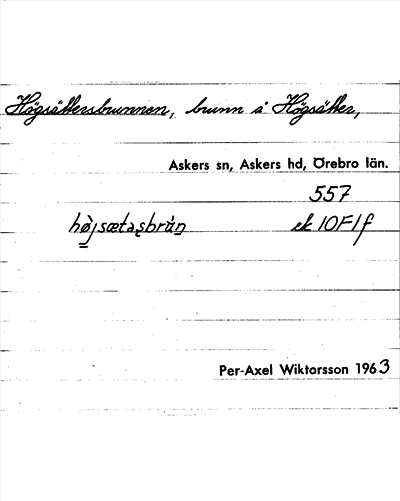 Högsättersbrunnen, brunn å Högsätter,
Askers sn, Askers hd, Örebro län.
557
hø̀jsætaʂbrùn̲ ek 10F1f
Per-Axel Wiktorsson 1963